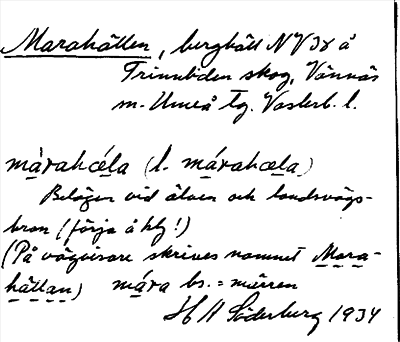 Marahällen, berghäll NV 38 å
Trinnliden skog, Vännäs
m. Umeå tg. Västerb. l.
màrahǽla (l. márahæla)
Belägen vid älven och landsvägs-
bron (färja å hlj!)
(På vägvisare skrives namnet Mara-
hällan) mára bs. = märren
H A Söderberg 1934